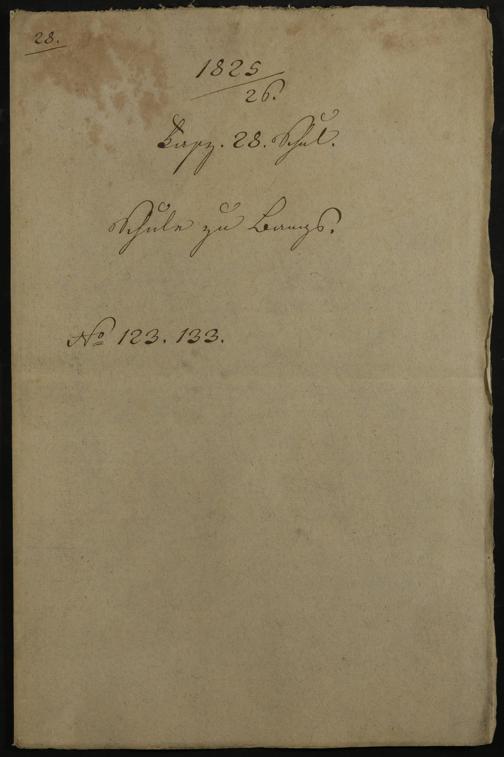 28.
1825
26.
Fasz. 28. Schul.
Schule zu Bangs.
No 123. 133.